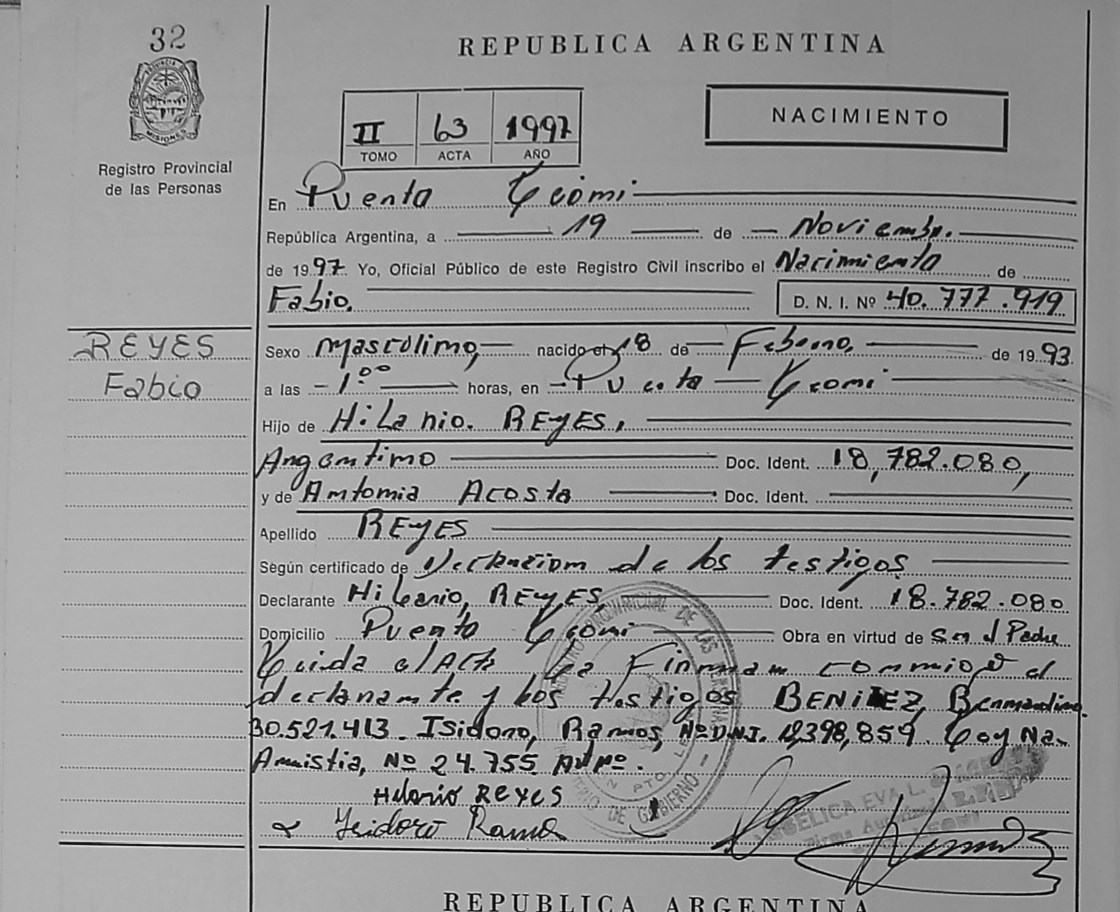 32
REPUBLICA ARGENTINA
PROVINCIA DE
MISIONES
Registro Provincial
de las Personas
II 63 1997
TOMO ACTA AÑO
NACIMIENTO
En Puerto Leoni
República Argentina, a 19 de Noviembr.
de 1997. Yo, Oficial Público de este Registro Civil inscribo el Nacimiento de
Fabio.
D. N. I. Nº 40.777.919
REYES
Fabio
Sexo masculino, nacido el 18 de Febrero, de 1993
a las -1⁰⁰ horas, en Puerto Leoni
Hijo de Hilario. REYES,
Argentino Doc. Ident. 18,782.080,
y de Antonia Acosta Doc. Ident.
Apellido REYES
Según certificado de Declaracion de los testigos
Declarante Hilario, REYES, Doc. Ident. 18.782.080
Domicilio Puerto Leoni Obra en virtud de Ser el Padre
Leida el Acta La Firman conmigo el
declarante y los testigos BENITEZ, Bernardino.
30.521.413. Isidoro, Ramos, Nº D.N.I. 12,398,859. Ley Na.
Amnistia, Nº 24.755
Hilario REYES
Isidoro Ramos
DE GOBIERNO
PTO. LE
ANGELICA EVA L. DE
REPUBLICA ARGENTINA